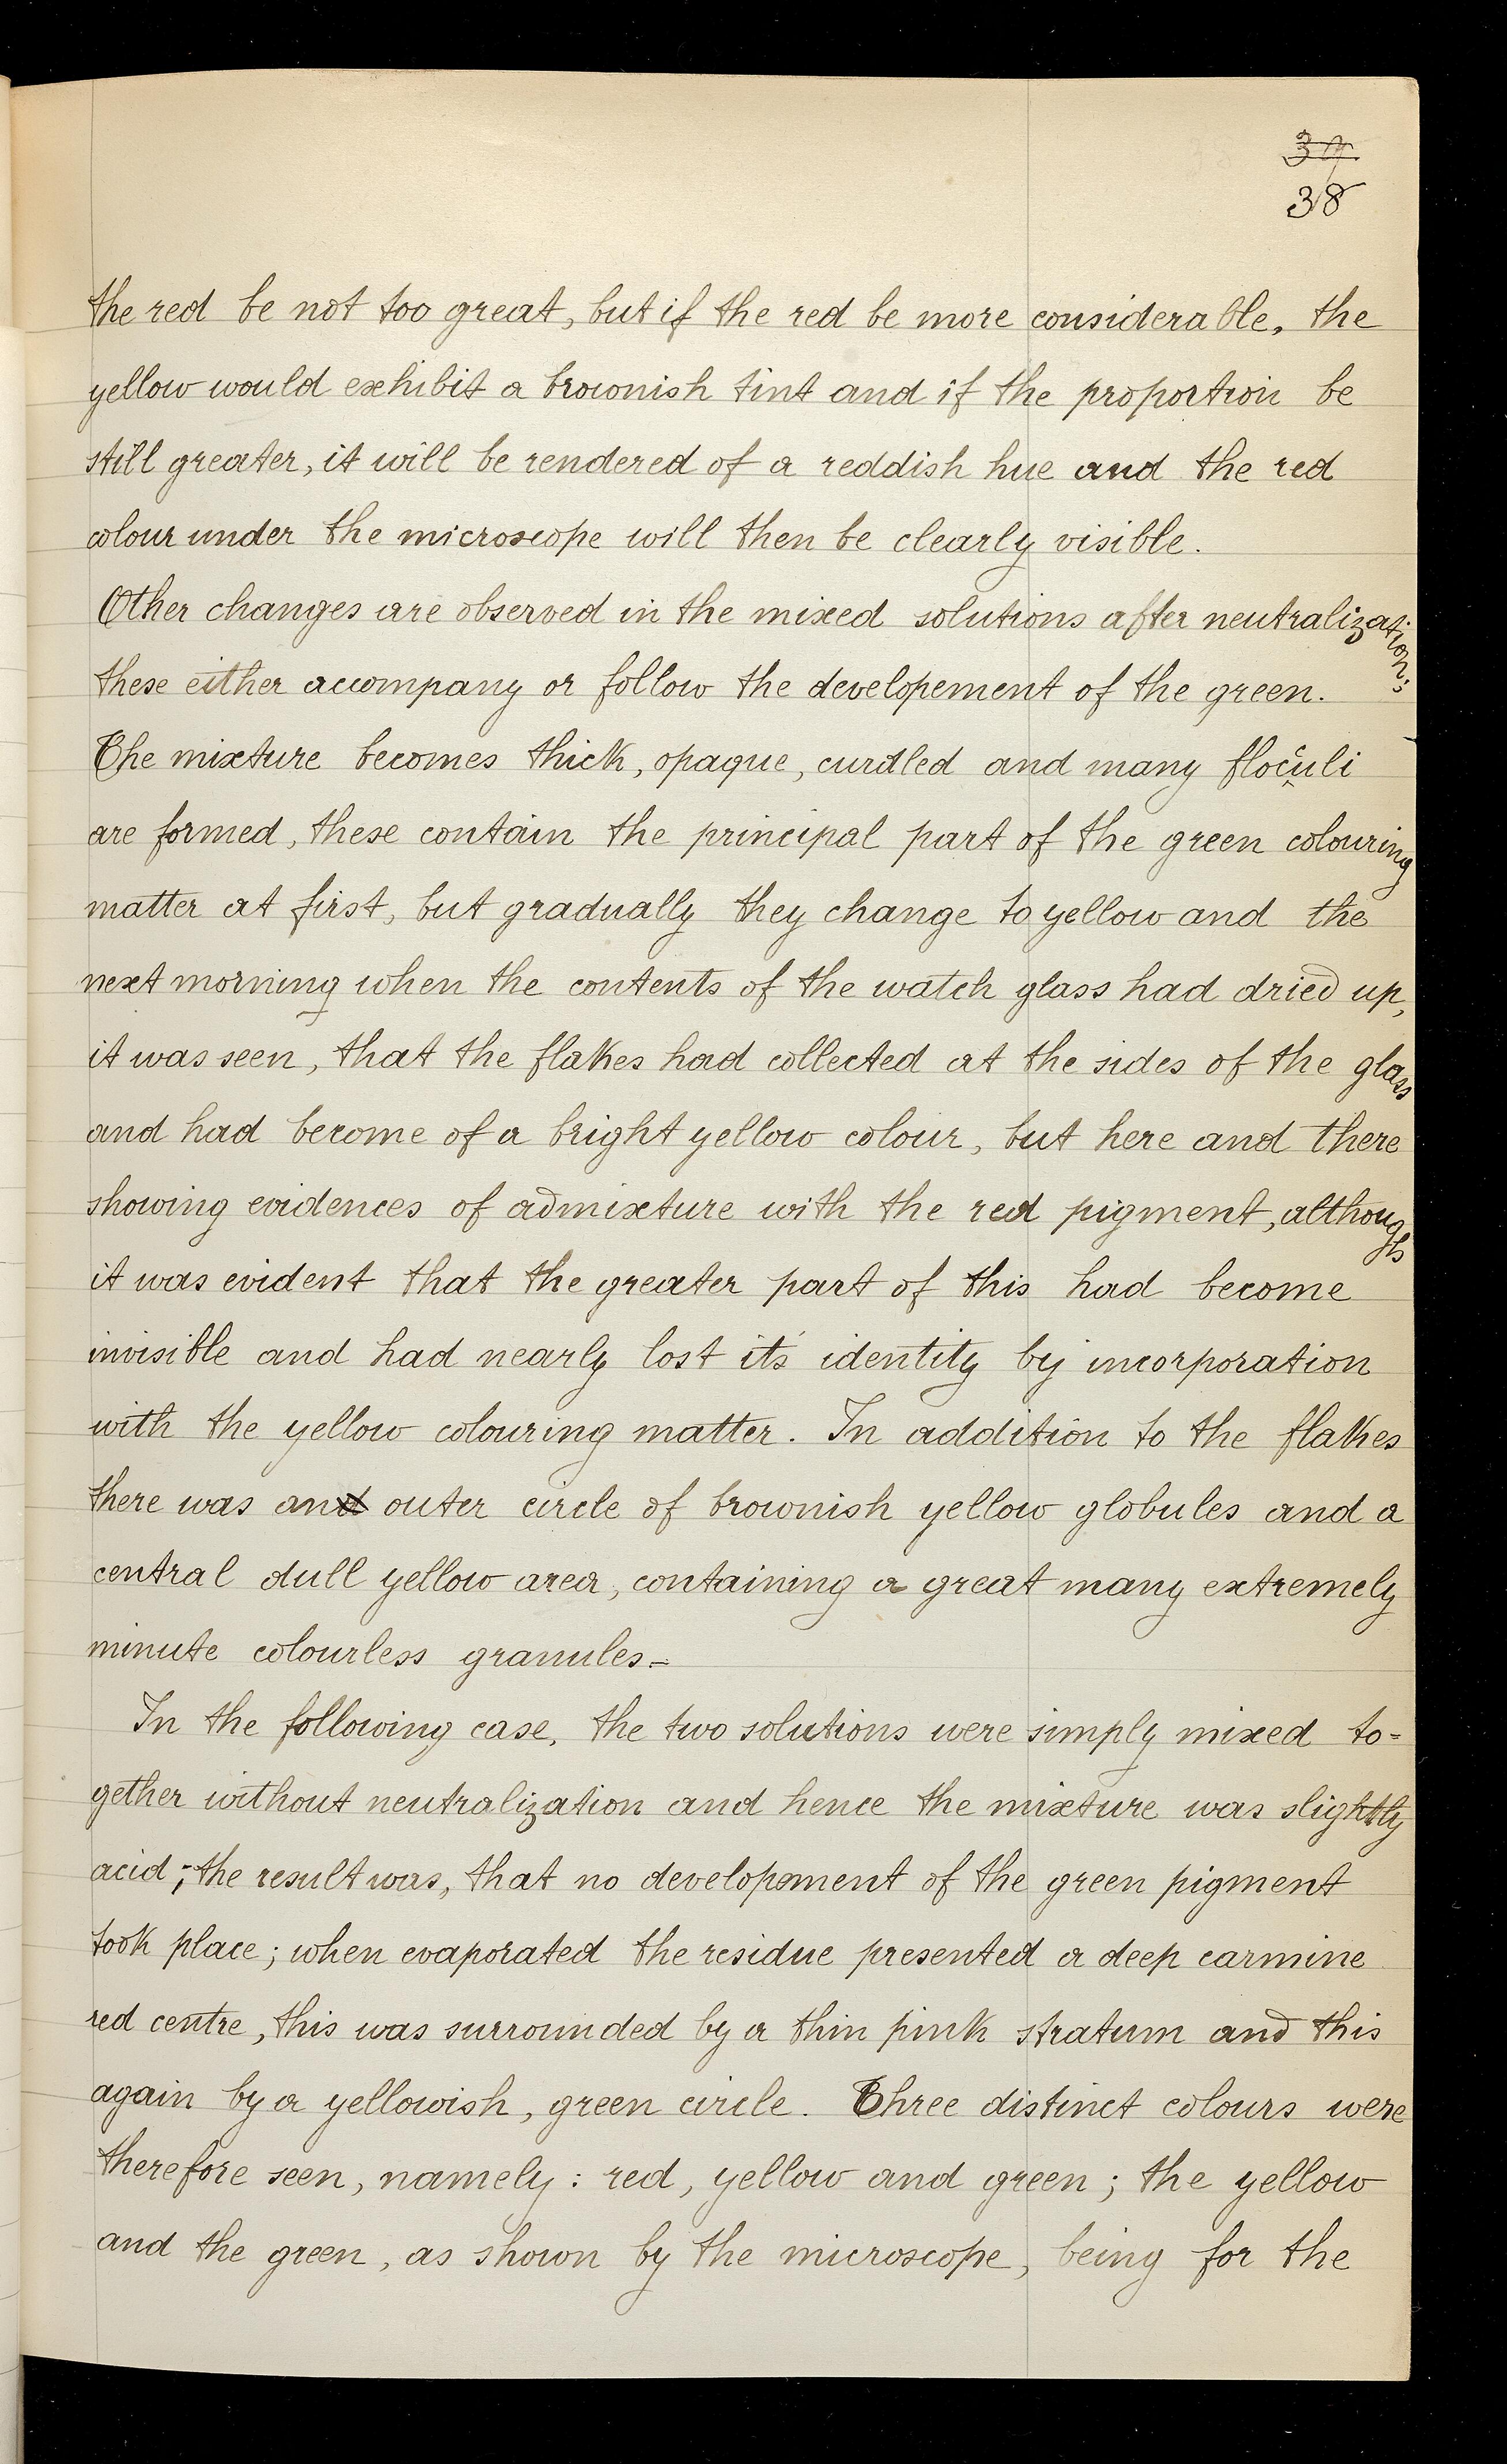 38
the red be not too great, but if the red be more considerable, the
yellow would exhibit a brownish tint and if the proportion be
still greater, it will be rendered of a reddish hue and the red
colour under the microscope will then be clearly visible.
Other changes are observed in the mixed solutions after neutralization;
these either accompany or follow the developement of the green.
The mixture becomes thick, opaque, curdled and many flocculi
are formed, these contain the principal part of the green colouring
matter at first, but gradually they change to yellow and the
next morning when the contents of the watch glass had dried up,
it was seen, that the flakes had collected at the sides of the glass
and had become of a bright yellow colour, but here and there
showing evidences of admixture with the red pigment, although
it was evident that the greater part of this had become
invisible and had nearly lost it's identity by incorporation
with the yellow colouring matter. In addition to the flakes
there was an outer circle of brownish yellow globules and a
central dull yellow area, containing a great many extremely
minute colourless granules.=
In the following case, the two solutions were simply mixed to=
gether without neutralization and hence the mixture was slightly
acid; the result was, that no development of the green pigment
took place; when evaporated the residue presented a deep carmine
red centre, this was surrounded by a thin pink stratum and this
again by a yellowish, green circle. Three distinct colours were
therefore seen, namely: red, yellow and green; the yellow
and the green, as shown by the microscope, being for the